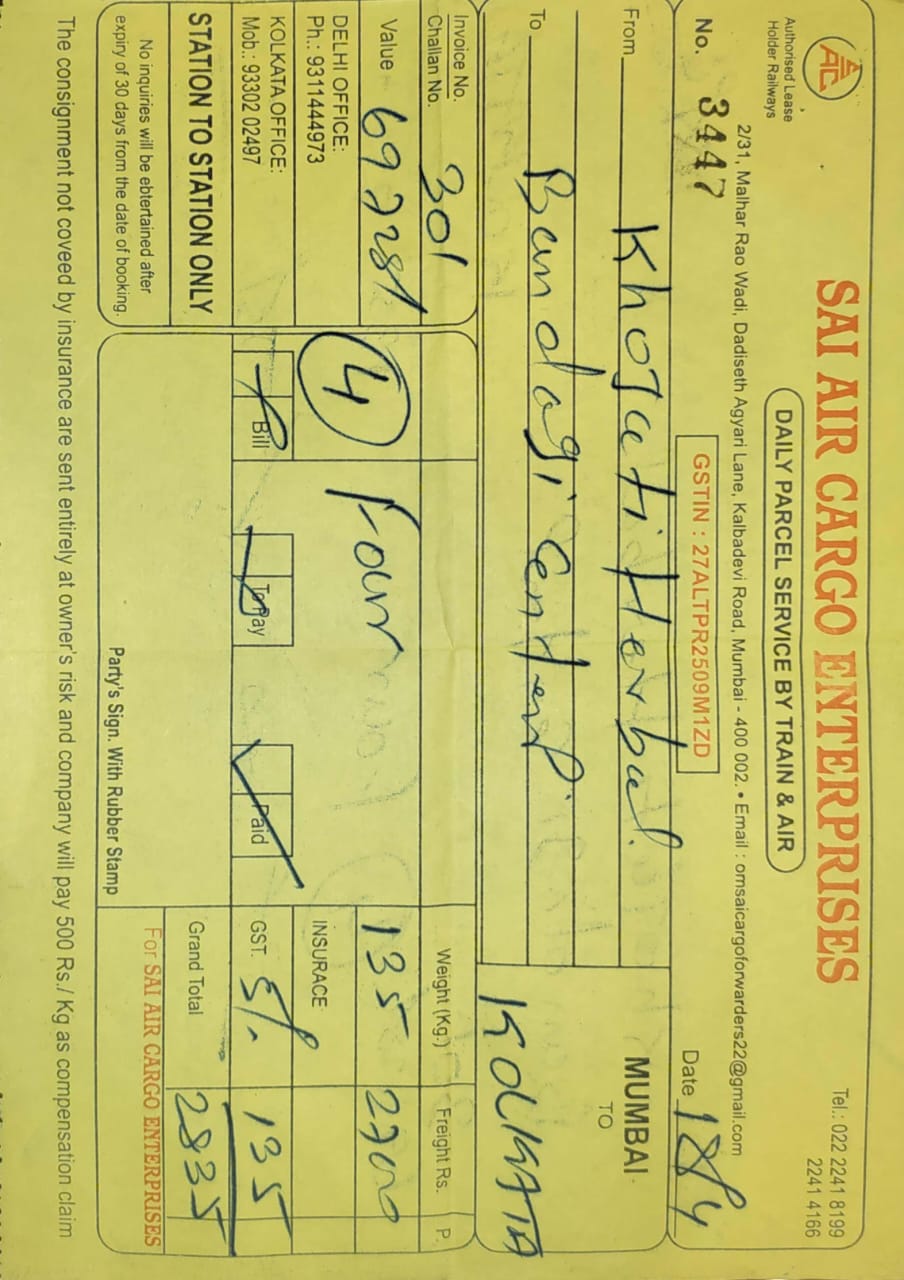 SAI AIR CARGO ENTERPRISES
Tel.: 022 2241 8199
2241 4166
AC
Authorised Lease
Holder Railways
DAILY PARCEL SERVICE BY TRAIN & AIR
2/31, Malhar Rao Wadi, Dadiseth Agyari Lane, Kalbadevi Road, Mumbai - 400 002. • Email : omsaicargoforwarders22@gmail.com
No. 3447
GSTIN : 27ALTPR2509M1ZD
Date 18/4
From Khojati Herbal.
MUMBAI
TO
KOLKATA
To Bandagi Enterp.
Invoice No.
Challan No. 301
Weight (Kg.) Freight Rs. P.
Value 69728/
4 Four
135 2700
DELHI OFFICE:
Ph.: 9311444973
INSURACE
KOLKATA OFFICE:
Mob.: 93302 02497
Bill To Pay Paid
GST. 5%. 135
STATION TO STATION ONLY
Grand Total 2835
No inquiries will be ebtertained after
expiry of 30 days from the date of booking.
Party's Sign. With Rubber Stamp
For SAI AIR CARGO ENTERPRISES
The consignment not coveed by insurance are sent entirely at owner's risk and company will pay 500 Rs./ Kg as compensation claim